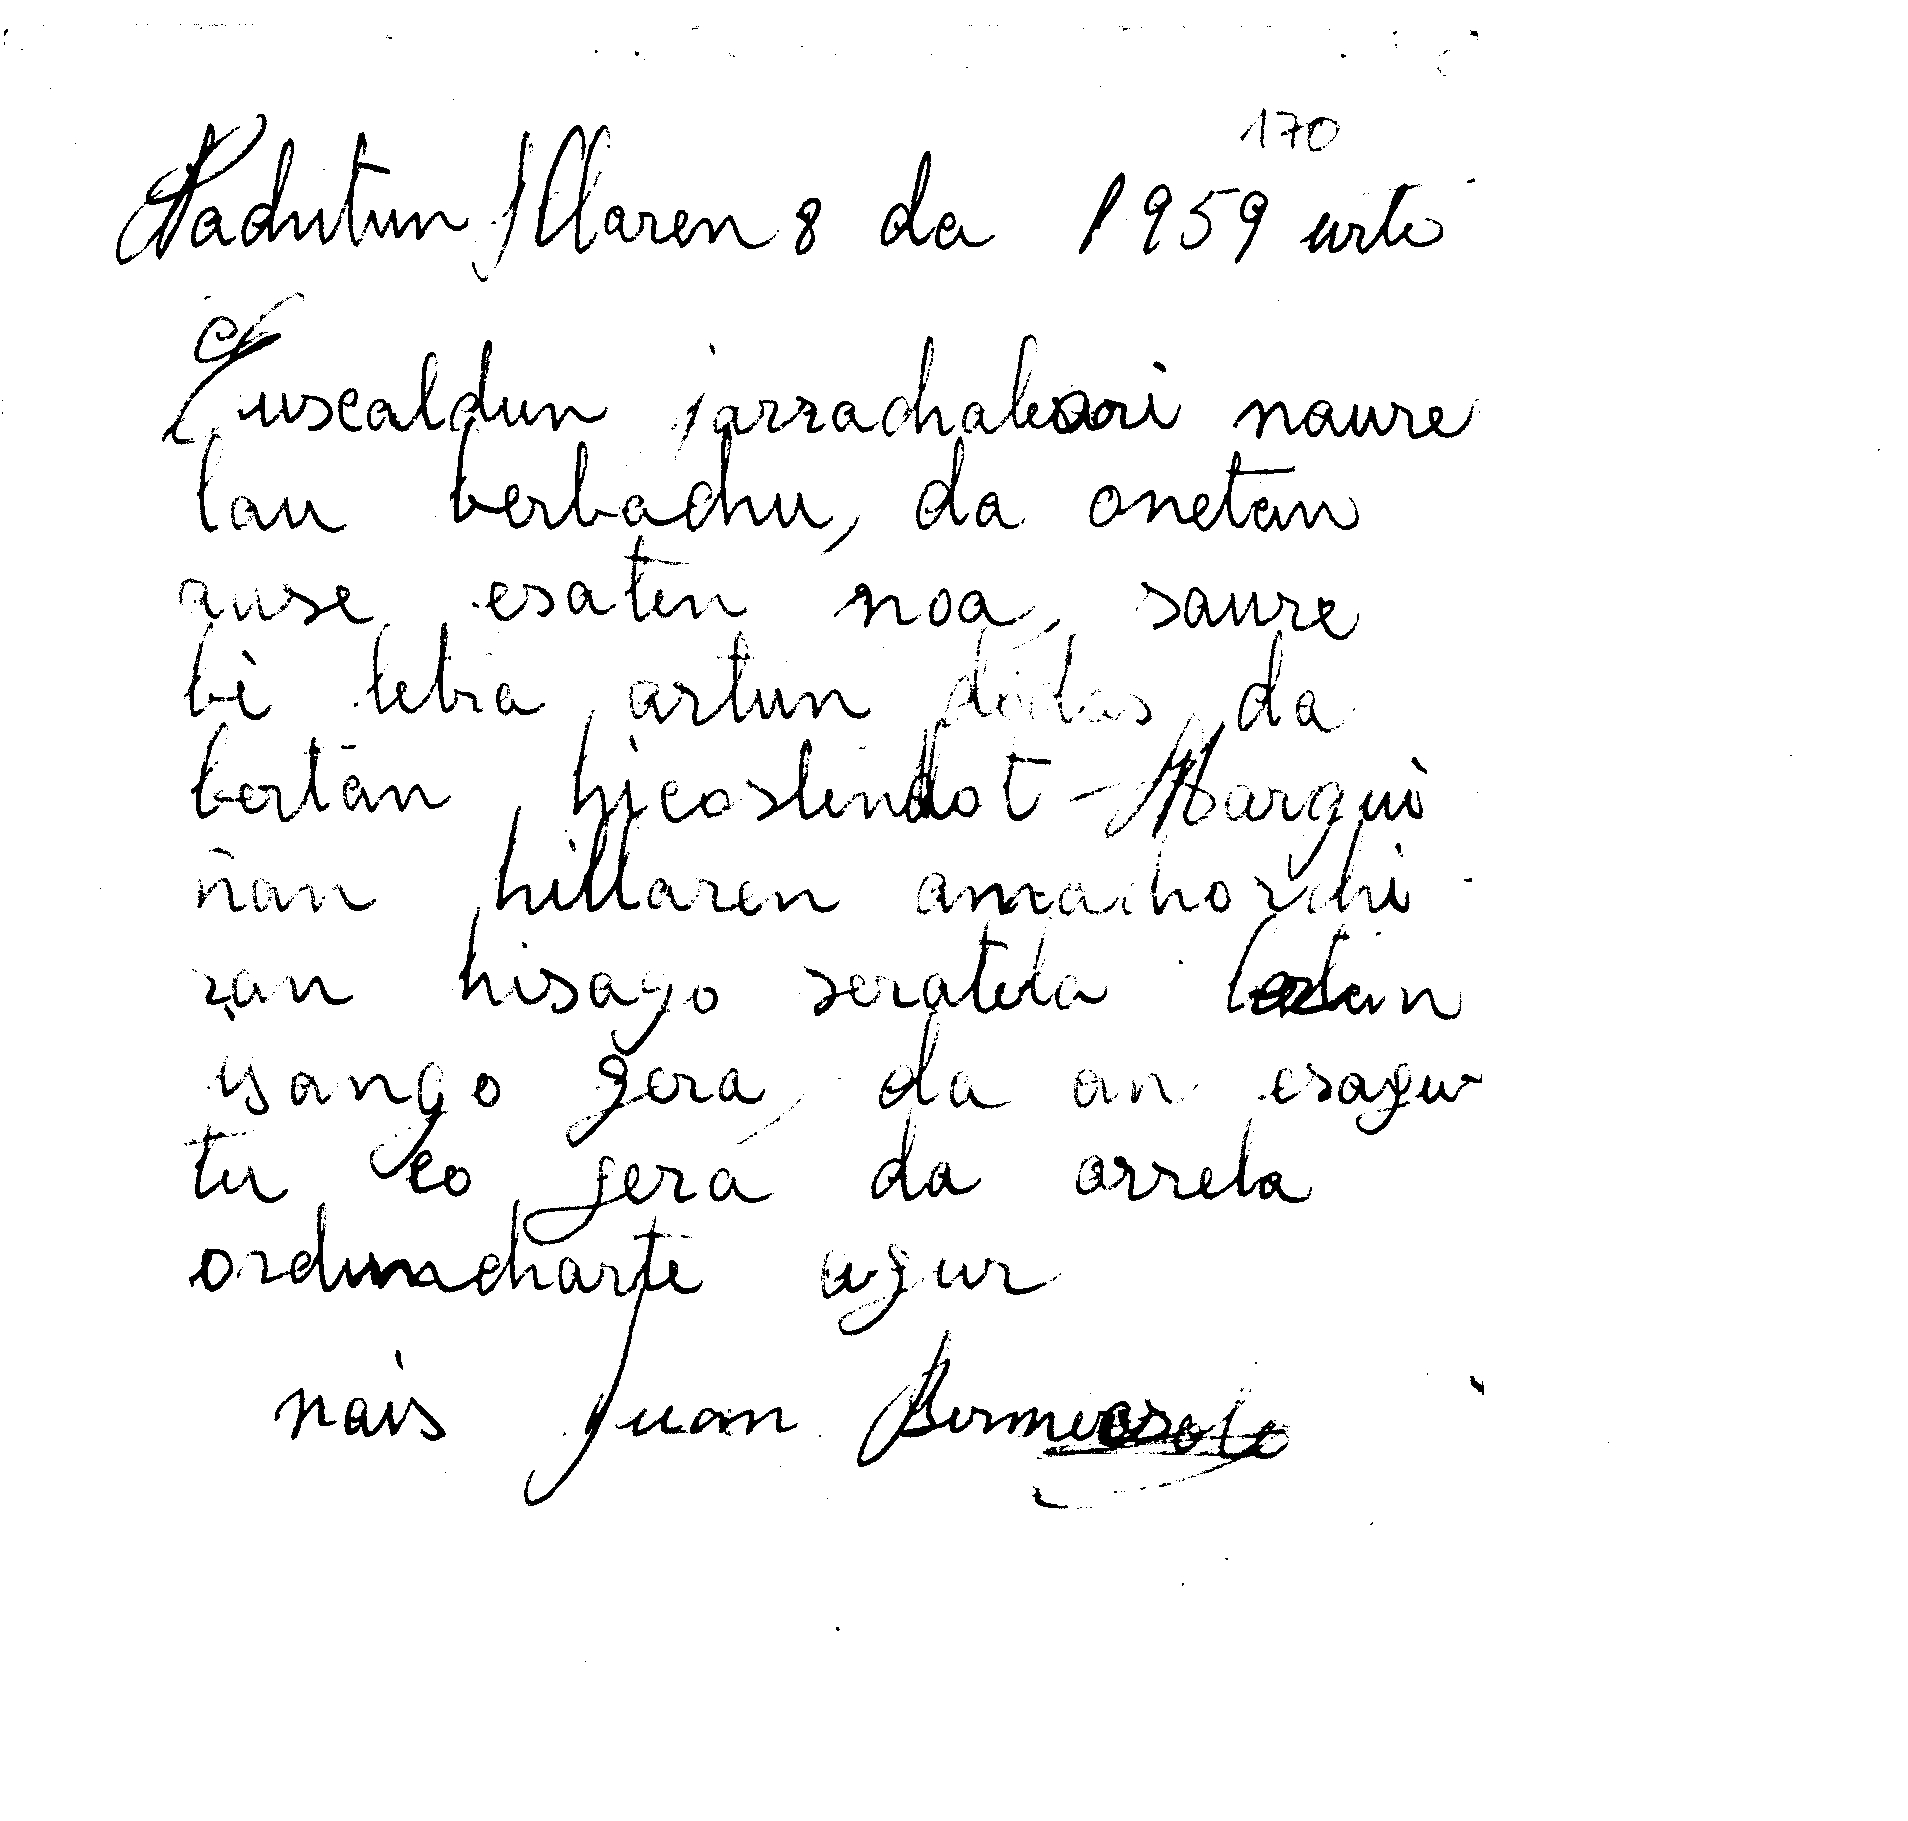 170
Nadutun Illaren 8 da 1959 urte
Euscaldun jarrachaleori naure
lau berbachu, da onetan
ause esaten noa, saure
bi letra artun dodas da
bertan hicoslendot - Marqui
ñan hillaren amachorchi
ran hisago seratela bertan
isango gera, da an esagu
tu co gera da orrela
orduncharte agur
nais Juan Bermeosolo